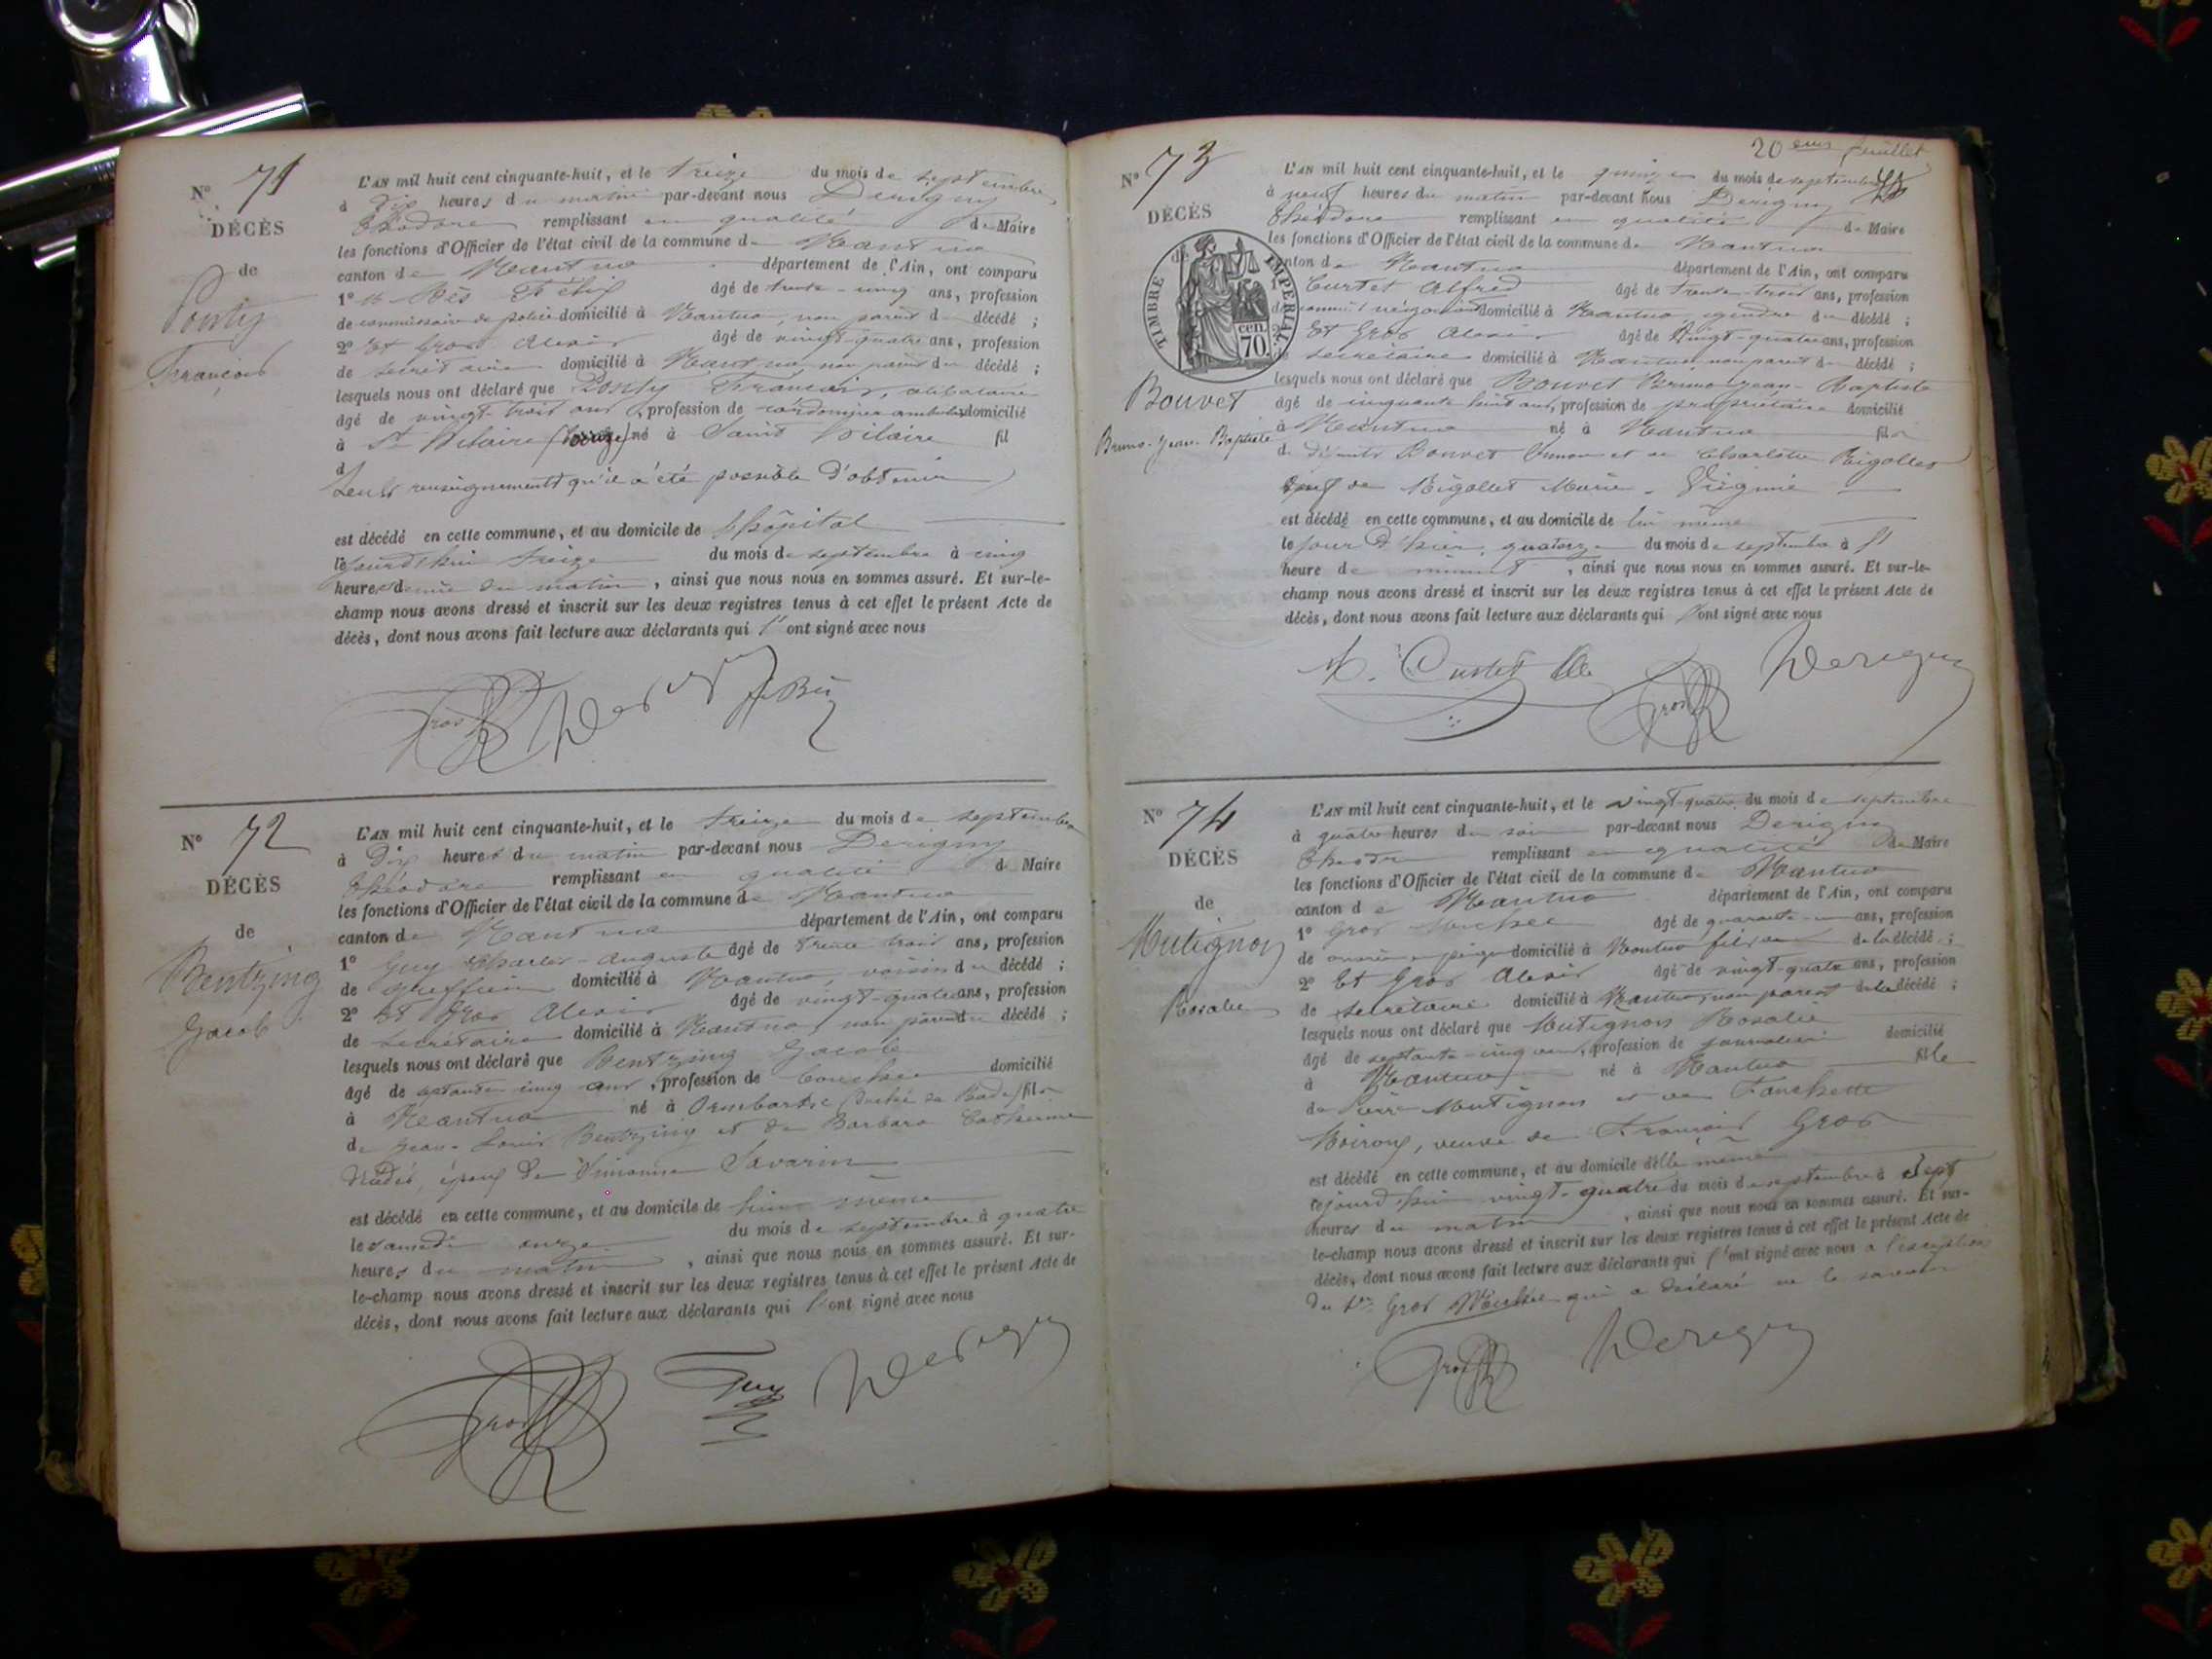 N° 71
DÉCÈS
de
Ponty
François
L'AN mil huit cent cinquante-huit, et le treize du mois de septembre
à dix heures du matin par-devant nous Derigny
Théodore remplissant en qualité de Maire
les fonctions d'Officier de l'état civil de la commune de Nantua
canton de Nantua département de l'Ain, ont comparu
1° Bès Félix âgé de trente-cinq ans, profession
de commissaire de police domicilié à Nantua, non parent du décédé ;
2° Et Gros Alexis âgé de vingt-quatre ans, profession
de secrétaire domicilié à Nantua non parent du décédé ;
lesquels nous ont déclaré que Ponty François, célibataire
âgé de vingt-trois ans, profession de cordonnier ambulant domicilié
à St Hilaire né à Saint Hilaire fil
d
Seuls renseignements qu'il a été possible d'obtenir
est décédé en cette commune, et au domicile de l'hôpital
le jourd'hui treize du mois de septembre à cinq
heures demie du matin, ainsi que nous nous en sommes assuré. Et sur-le-
champ nous avons dressé et inscrit sur les deux registres tenus à cet effet le présent Acte de
décès, dont nous avons fait lecture aux déclarants qui l'ont signé avec nous
Gros Derigny Bès
N° 72
DÉCÈS
de
Bentzing
Jacob
L'AN mil huit cent cinquante-huit, et le treize du mois de septembre
à Dix heures du matin par-devant nous Derigny
Théodore remplissant en qualité de Maire
les fonctions d'Officier de l'état civil de la commune de Nantua
canton de Nantua département de l'Ain, ont comparu
1° Guy Charles-Auguste âgé de trente trois ans, profession
de greffier domicilié à Nantua, voisin du décédé ;
2° Et Gros Alexis âgé de vingt-quatre ans, profession
de secrétaire domicilié à Nantua, non parent du décédé ;
lesquels nous ont déclaré que Bentzing Jacob
âgé de septante cinq ans, profession de domicilié
à Nantua né à de Bade) fils
de Jean-Louis Bentzing et de Barbara Catherine
époux de Simonne Savarin
est décédé en cette commune, et au domicile de lui même
le samedi onze du mois de septembre à quatre
heures du matin, ainsi que nous nous en sommes assuré. Et sur-
le-champ nous avons dressé et inscrit sur les deux registres tenus à cet effet le présent Acte de
décès, dont nous avons fait lecture aux déclarants qui l'ont signé avec nous
Gros Guy Derigny
20eme feuillet
N° 73
DÉCÈS
de
TIMBRE IMPÉRIAL
70 cen.
Bouvet
Bruno-Jean-Baptiste
L'AN mil huit cent cinquante-huit, et le quinze du mois de septembre
à neuf heures du matin par-devant nous Derigny
Théodore remplissant en qualité de Maire
les fonctions d'Officier de l'état civil de la commune de Nantua
canton de Nantua département de l'Ain, ont comparu
1° Curtet Alfred âgé de trente-trois ans, profession
de négociant domicilié à Nantua gendre du décédé ;
2° Et Gros Alexis âgé de vingt-quatre ans, profession
de secrétaire domicilié à Nantua non parent du décédé ;
lesquels nous ont déclaré que Bouvet Bruno Jean-Baptiste
âgé de cinquante huit ans, profession de propriétaire domicilié
à Nantua né à Nantua fils
de défunts Bouvet et de Charlotte Rigollet
veuf de Rigollet Marie-Virginie
est décédé en cette commune, et au domicile de lui même
le jour d'hier quatorze du mois de septembre à
heure de minuit, ainsi que nous nous en sommes assuré. Et sur-le-
champ nous avons dressé et inscrit sur les deux registres tenus à cet effet le présent Acte de
décès, dont nous avons fait lecture aux déclarants qui l'ont signé avec nous
A. Curtet Gros Derigny
N° 74
DÉCÈS
de
Mutignon
Rosalie
L'AN mil huit cent cinquante-huit, et le vingt-quatre du mois de septembre
à quatre heures du soir par-devant nous Derigny
Théodore remplissant en qualité de Maire
les fonctions d'Officier de l'état civil de la commune de Nantua
canton de Nantua département de l'Ain, ont comparu
1° Gros Michel âgé de quarante-un ans, profession
de domicilié à Nantua fils de la décédé ;
2° Et Gros Alexis âgé de vingt-quatre ans, profession
de secrétaire domicilié à Nantua, non parent de la décédé ;
lesquels nous ont déclaré que Mutignon Rosalie
âgé de septante-cinq ans, profession de journalière domicilié
à Nantua né à Nantua fille
de Pierre Mutignon et de Fanchette
Moiroux, veuve de François Gros
est décédé en cette commune, et au domicile d'elle même
cejourd'hui vingt-quatre du mois de septembre à sept
heures du matin, ainsi que nous nous en sommes assuré. Et sur-
le-champ nous avons dressé et inscrit sur les deux registres tenus à cet effet le présent Acte de
décès, dont nous avons fait lecture aux déclarants qui l'ont signé avec nous a l'exception
du Sr Gros Michel qui a déclaré ne le savoir
Gros Derigny